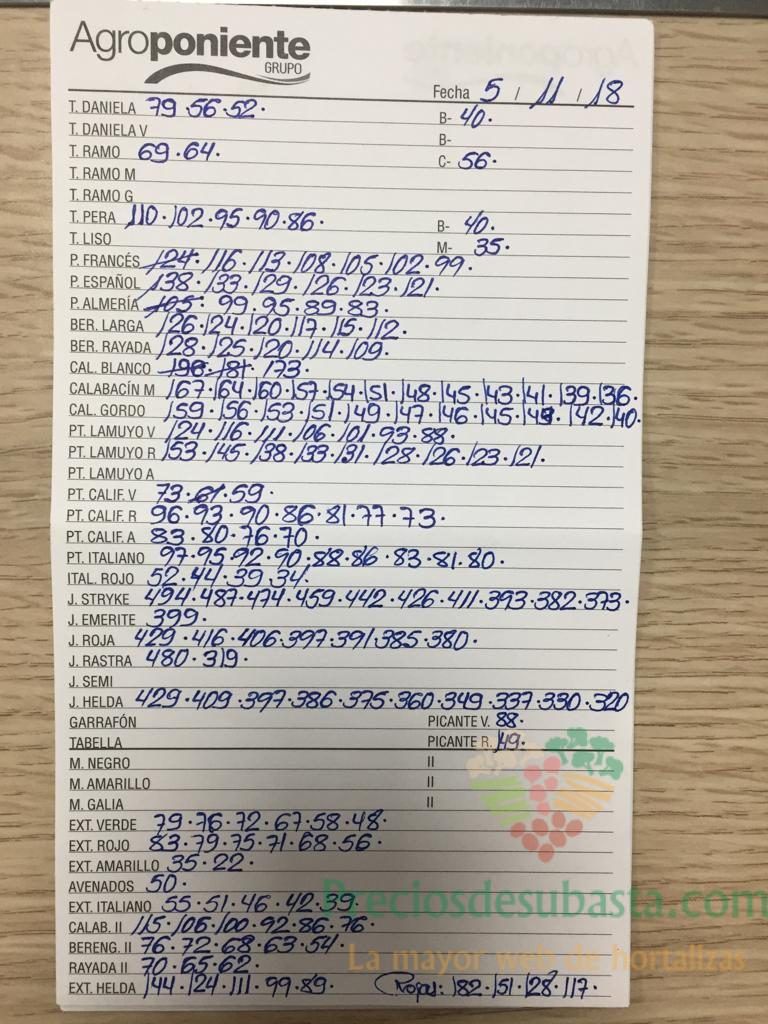 Agroponiente
GRUPO
Fecha 5 / 11 / 18
T. DANIELA 79·56·52· B- 40·
T. DANIELA V B-
T. RAMO 69·64· C- 56·
T. RAMO M
T. RAMO G
T. PERA 110·102·95·90·86· B- 40·
T. LISO M- 35·
P. FRANCÉS 124·116·113·108·105·102·99·
P. ESPAÑOL 138·133·129·126·123·121·
P. ALMERÍA 105·99·95·89·83·
BER. LARGA 126·124·120·117·115·112·
BER. RAYADA 128·125·120·114·109·
CAL. BLANCO 190·181·173·
CALABACÍN M 167·164·160·157·154·151·148·145·143·141·139·136·
CAL. GORDO 159·156·153·151·149·147·146·145·142·140·
PT. LAMUYO V 124·116·111·106·101·93·88·
PT. LAMUYO R 153·145·138·133·131·128·126·123·121·
PT. LAMUYO A
PT. CALIF. V 73·61·59·
PT. CALIF. R 96·93·90·86·81·77·73·
PT. CALIF. A 83·80·76·70·
PT. ITALIANO 97·95·92·90·88·86·83·81·80·
ITAL. ROJO 52·44·39·34·
J. STRYKE 494·487·474·459·442·426·411·393·382·373·
J. EMERITE 399·
J. ROJA 429·416·406·397·391·385·380·
J. RASTRA 480·319·
J. SEMI
J. HELDA 429·409·397·386·375·360·349·337·330·320
GARRAFÓN PICANTE V. 88·
TABELLA PICANTE R. 149·
M. NEGRO II
M. AMARILLO II
M. GALIA II
EXT. VERDE 79·76·72·67·58·48·
EXT. ROJO 83·79·75·71·68·56·
EXT. AMARILLO 35·22·
AVENADOS 50·
EXT. ITALIANO 55·51·46·42·39·
Preciosdesubasta.com
CALAB. II 115·106·100·92·86·76·
BERENG. II 76·72·68·63·54·
La mayor web de hortalizas
RAYADA II 70·65·62·
EXT. HELDA 144·124·111·99·89· Rojas: 182·151·128·117·